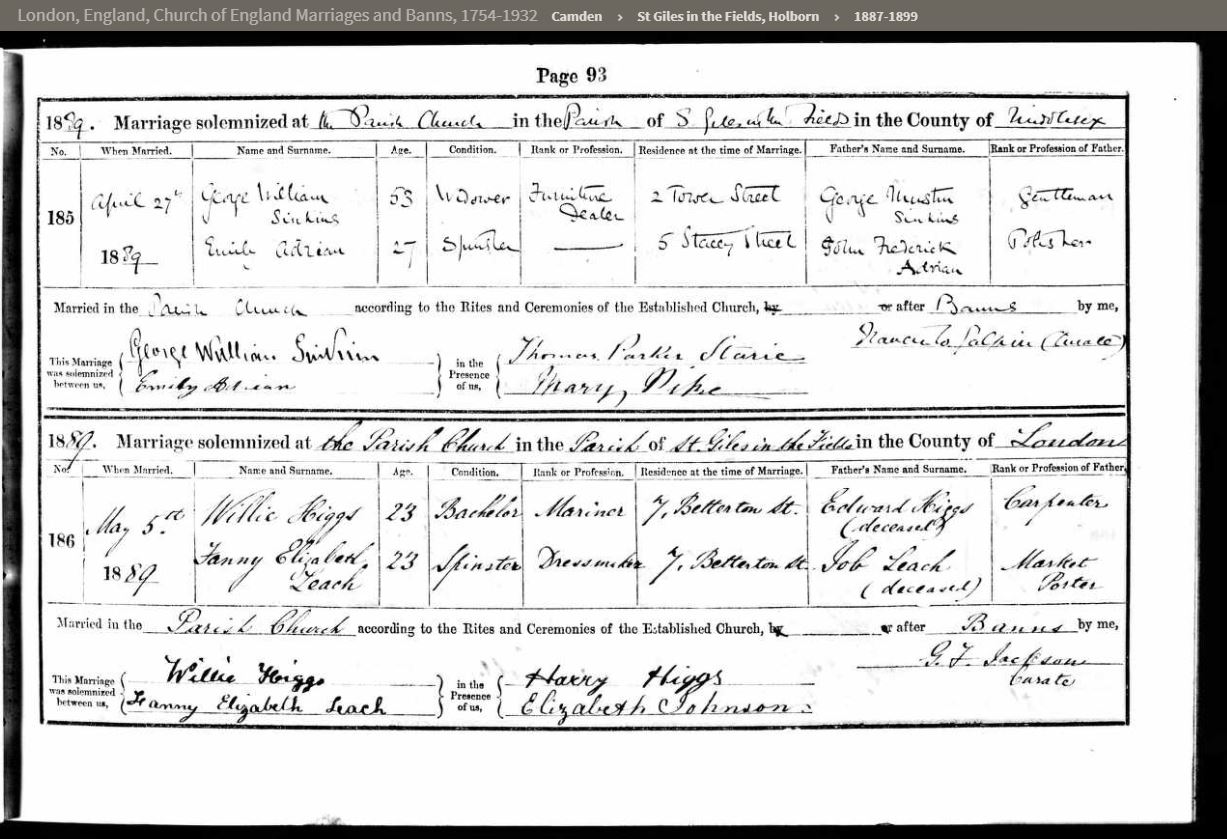 London, England, Church of England Marriages and Banns, 1754-1932 Camden › St Giles in the Fields, Holborn › 1887-1899
Page 93
1889. Marriage solemnized at the Parish Church in the Parish of S Giles in the Fields in the County of Middlesex
No. When Married. Name and Surname. Age. Condition. Rank or Profession. Residence at the time of Marriage. Father's Name and Surname. Rank or Profession of Father.
185 April 27th 1889
George William Sinkins 53 Widower Furniture Dealer 2 Tower Street George Sinkins Gentleman
Emily Adrian 27 Spinster 5 Stacey Street John Frederick Adrian Polisher
Married in the Parish Church according to the Rites and Ceremonies of the Established Church, by or after Banns by me,
(Curate)
This Marriage was solemnized between us, George William Sinkins in the Presence of us, Thomas Parker Starie
Emily Adrian Mary Pike
1889. Marriage solemnized at the Parish Church in the Parish of St. Giles in the Fields in the County of London
No. When Married. Name and Surname. Age. Condition. Rank or Profession. Residence at the time of Marriage. Father's Name and Surname. Rank or Profession of Father.
186 May 5th 1889
Willie Higgs 23 Bachelor Mariner 7, Betterton St. Edward Higgs (deceased) Carpenter
Fanny Elizabeth Leach 23 Spinster Dressmaker 7, Betterton St. Job Leach (deceased) Market Porter
Married in the Parish Church according to the Rites and Ceremonies of the Established Church, by or after Banns by me,
G. F. Jackson
Curate
This Marriage was solemnized between us, Willie Higgs in the Presence of us, Harry Higgs
Fanny Elizabeth Leach Elizabeth Johnson.